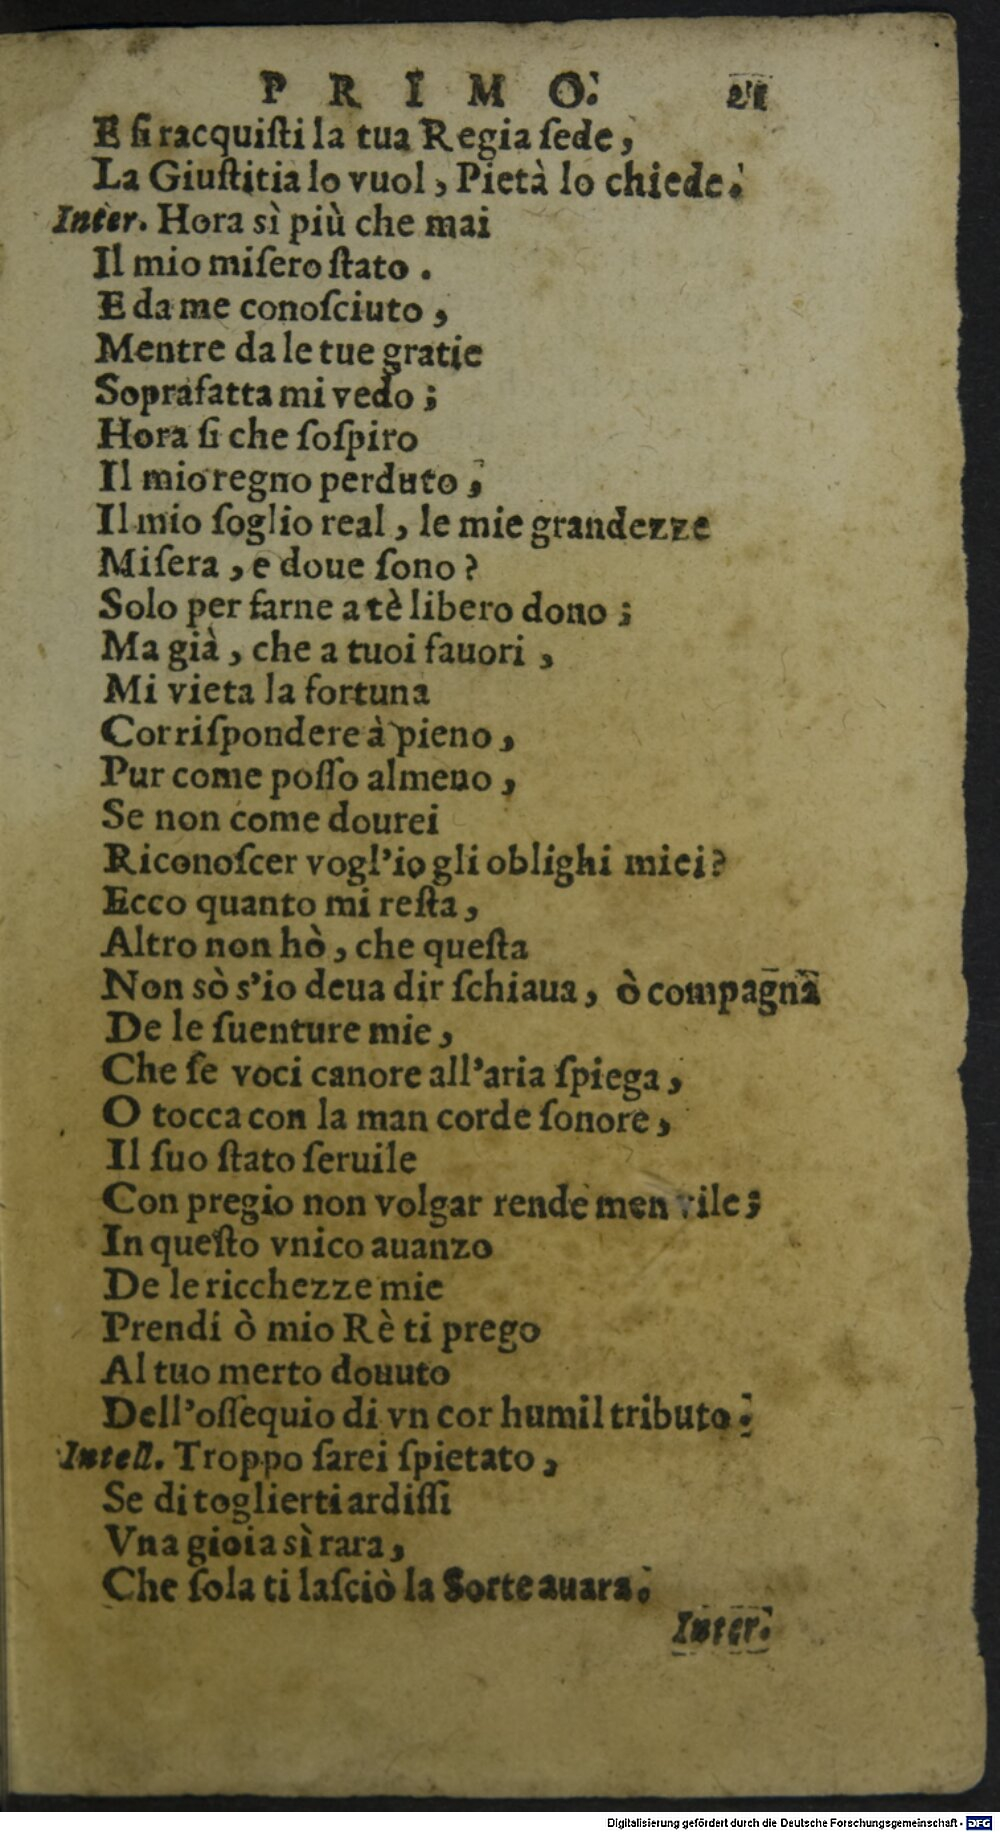 PRIMO. 21
E ſi racquiſti la tua Regia ſede,
La Giuſtitia lo vuol, Pietà lo chiede.
Inter. Hora sì più che mai
Il mio miſero ſtato.
E da me conoſciuto,
Mentre da le tue gratie
Soprafatta mi vedo;
Hora ſi che ſoſpiro
Il mio regno perduto,
Il mio ſoglio real, le mie grandezze
Miſera, e doue ſono?
Solo per farne a tè libero dono;
Ma già, che a tuoi fauori,
Mi vieta la fortuna
Corriſpondere à pieno,
Pur come poſſo almeno,
Se non come dourei
Riconoſcer vogl'io gli oblighi miei?
Ecco quanto mi reſta,
Altro non hò, che queſta
Non sò s'io deua dir ſchiaua, ò compagna
De le ſuenture mie,
Che ſe voci canore all'aria ſpiega,
O tocca con la man corde ſonore,
Il ſuo ſtato ſeruile
Con pregio non volgar rende men vile;
In queſto vnico auanzo
De le ricchezze mie
Prendi ò mio Rè ti prego
Al tuo merto douuto
Dell'oſſequio di vn cor humil tributo.
Intell. Troppo ſarei ſpietato,
Se di toglierti ardiſſi
Vna gioia sì rara,
Che ſola ti laſciò la Sorte auara.
Inter.
Digitalisierung gefördert durch die Deutsche Forschungsgemeinschaft - DFG